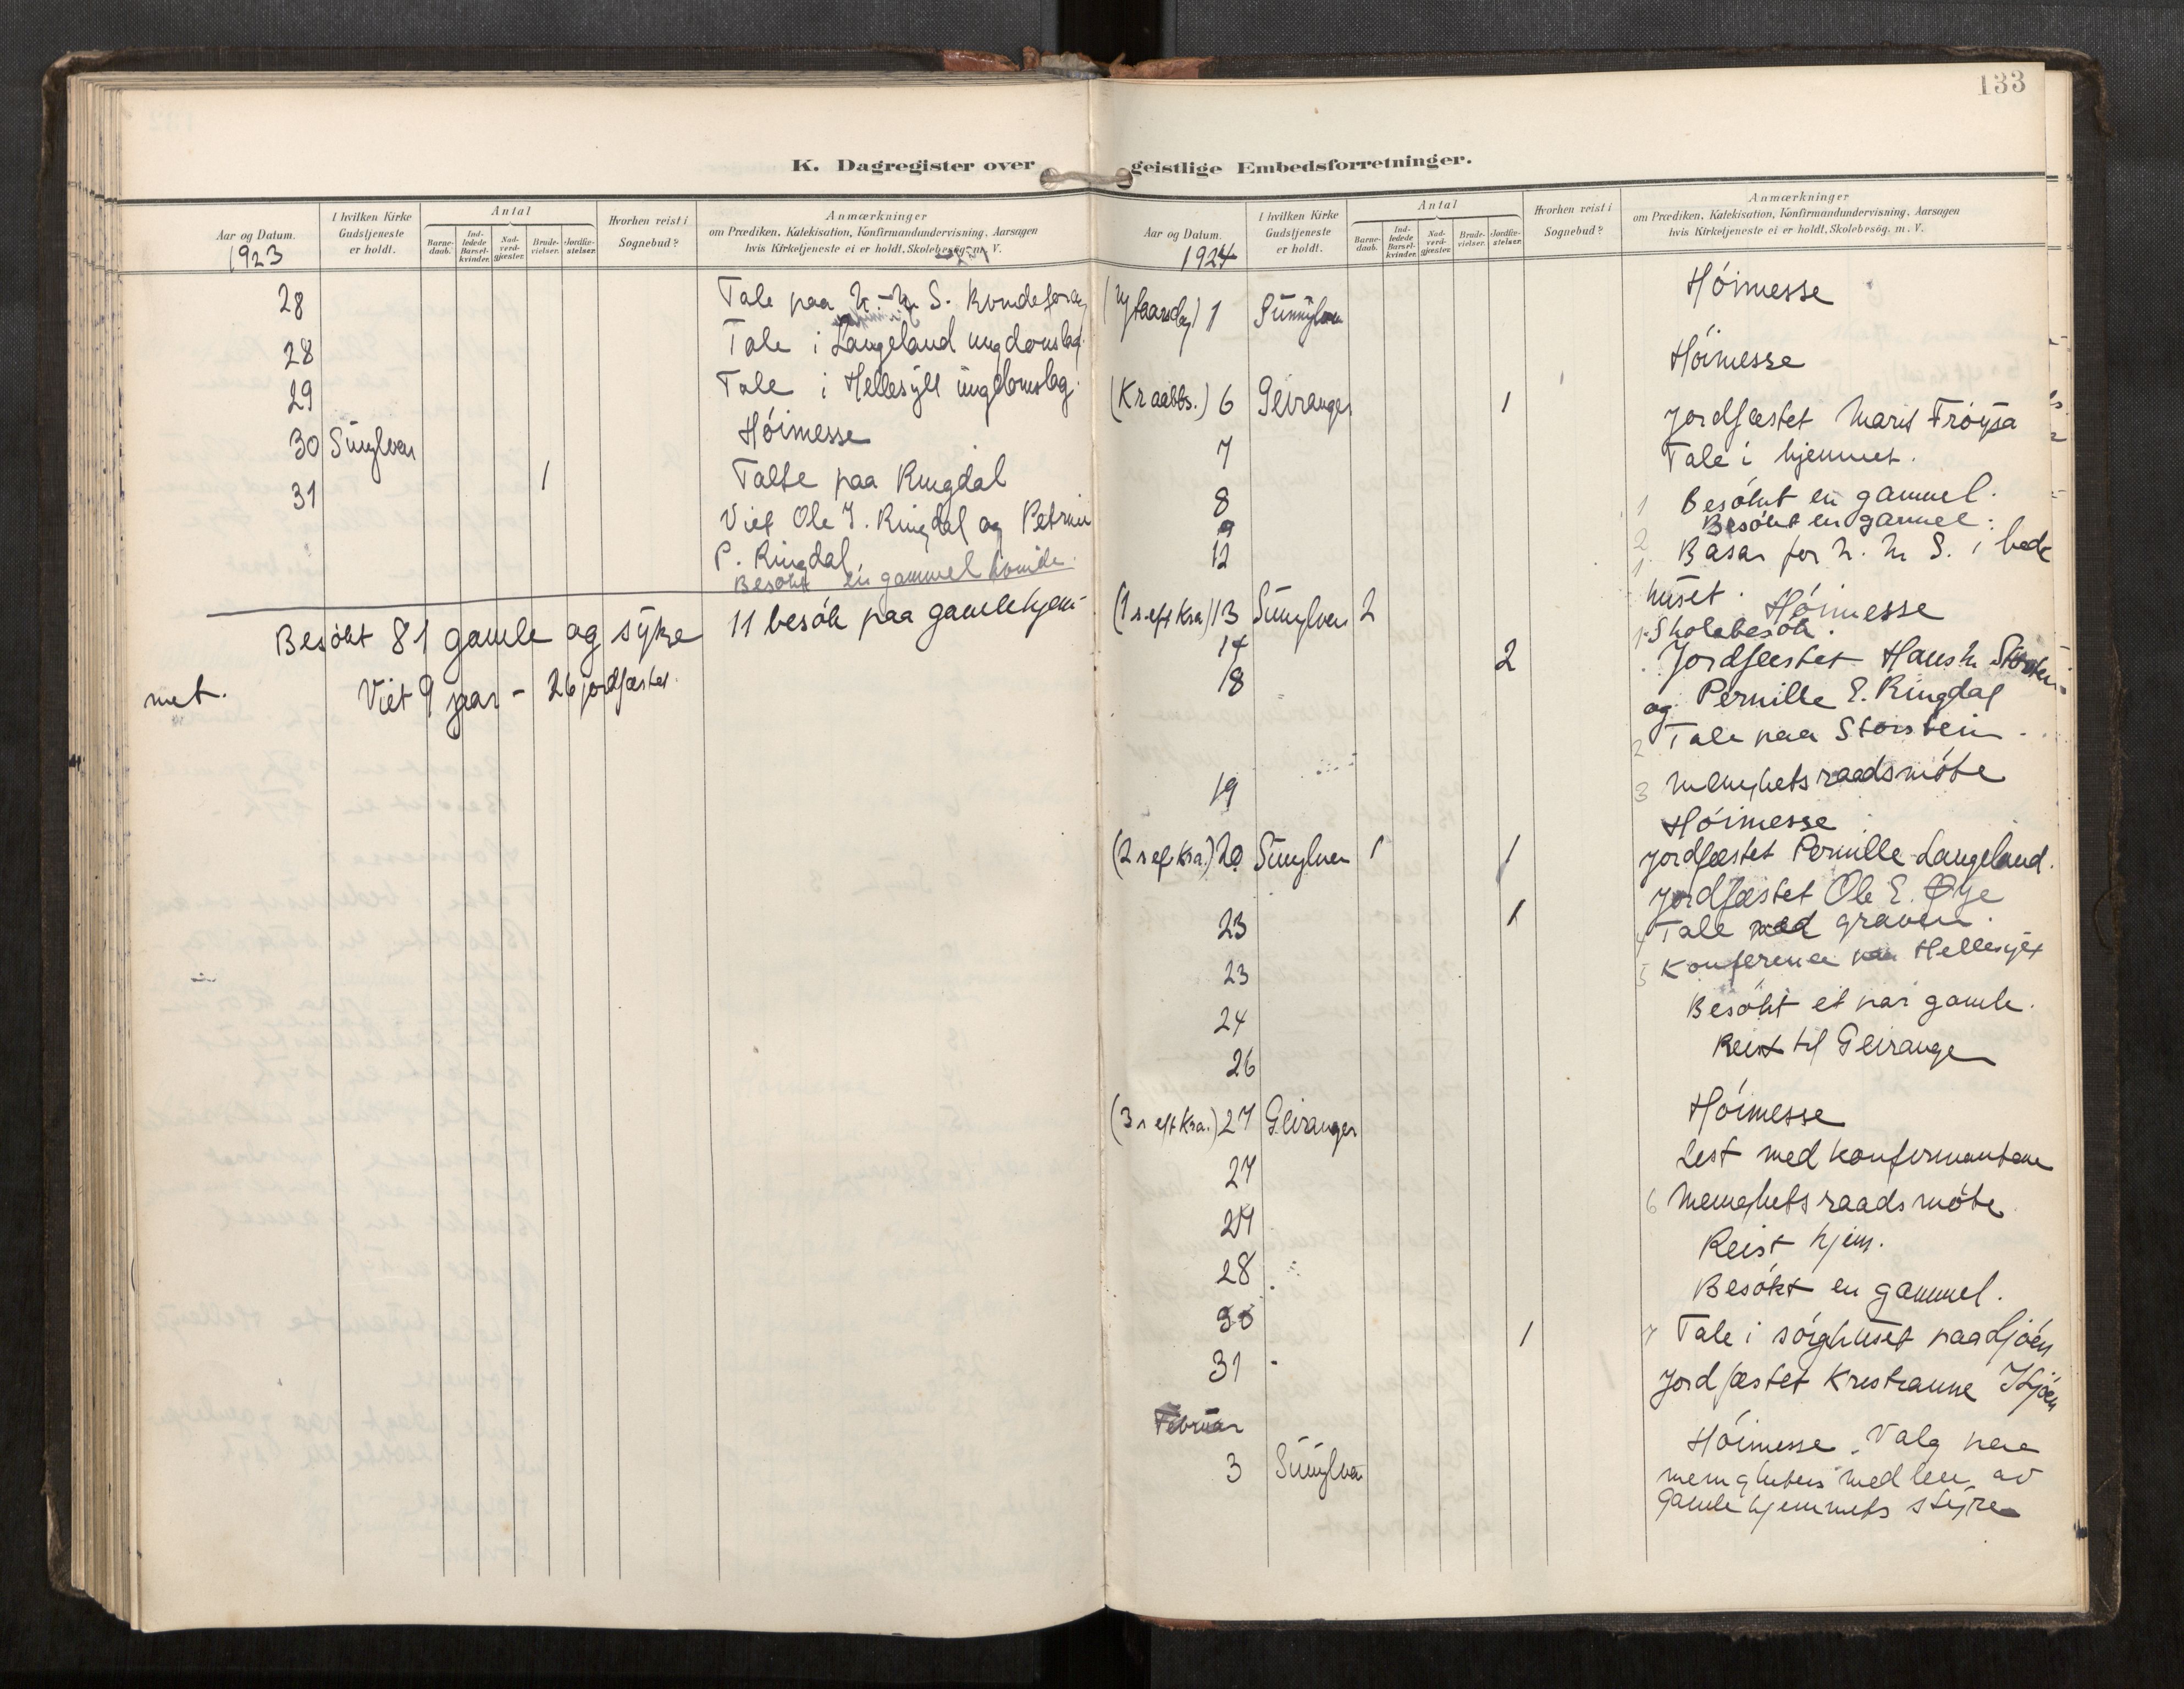 133
K. Dagregister over geistlige Embedsforretninger.
Aar og Datum.
1923
I hvilken Kirke Gudstjeneste er holdt.
Antal
Barne-daab.
Ind-ledede Barsel-kvinder.
Nad-verd-gjæster.
Brude-vielser.
Jordfæ-stelser.
Hvorhen reist i Sognebud?
Anmærkninger
om Prædiken, Katekisation, Konfirmandundervisning, Aarsagen
hvis Kirketjeneste ei er holdt, Skolebesøg. m. V.
28 Tale paa N.-M. S.
28 Tale i Langeland ungdomslag.
29 Tale i Hellesylt ungdomslag.
30 Sunylven Höimesse
31 1 Talte paa Ringdal
Viet Ole J. Ringdal og
P. Ringdal
Besökt en gammel kvinde.
Besökt 81 gamle og syke 11 besök paa gamlehjem-
met. Viet 9 par - 26 jordfæstet.
Aar og Datum.
1924
I hvilken Kirke Gudstjeneste er holdt.
Antal
Barne-daab.
Ind-ledede Barsel-kvinder.
Nad-verd-gjæster.
Brude-vielser.
Jordfæ-stelser.
Hvorhen reist i Sognebud?
Anmærkninger
om Prædiken, Katekisation, Konfirmandundervisning, Aarsagen
hvis Kirketjeneste ei er holdt, Skolebesøg. m. V.
(Nytaarsdag) 1 Sunnylven Höimesse
Höimesse
6 Geiranger 1 Jordfæstet Marit Fröysa
7 Tale i hjemmet.
8 1 Besökt en gammel.
9 2 Besökt en gammel.
12 1 Basar for N. M S. i bede
huset.
(1 s. eft Kra) 13 Sunylven 2 Höimesse
14 Skolebesök.
18 2 Jordfæstet Hans
og Pernille E. Ringdal
2 Tale paa Storstein.
19 3 Menighetsraadsmöte
Höimesse
(2 s ef. Kra.) 20 Sunylven 1 1 Jordfæstet Pernille Langeland.
Jordfæstet Ole E. Øye
23 1 4 Tale ved graven.
23 5 Konferense paa Hellesylt
24 Besökt et par gamle.
26 Reist til Geiranger
(3 s eft Kra.) 27 Geiranger Höimesse
27 Lest med konfirmantene
27 6 Menighetsraadsmöte.
28 Reist hjem.
Besökt en gammel.
30 1 7 Tale i sörghuset paa Ljöen
31 Jordfæstet
Februar
3 Sunylven Höimesse. Valg paa
menighetens medlem av
gamlehjemmets styre